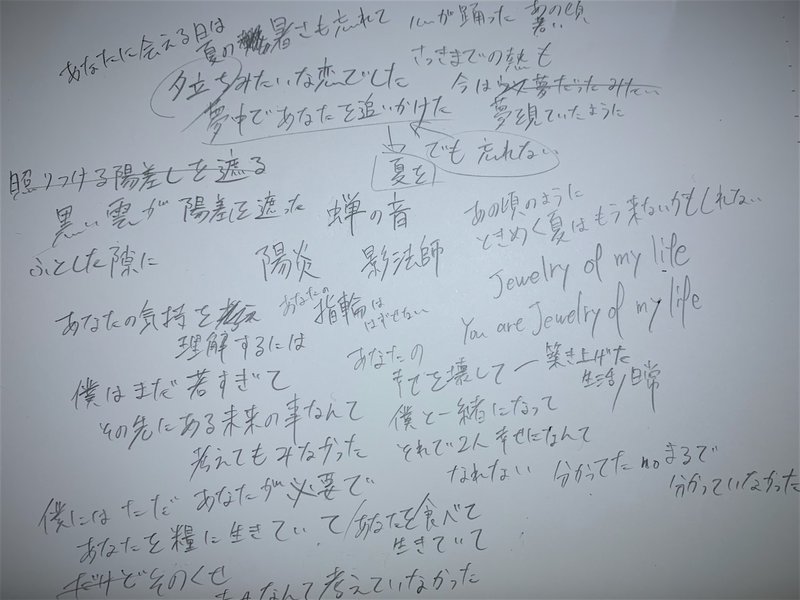 あなたに会える日は
夏の暑さも忘れて 心が踊った あの頃
暑い
夕立ちみたいな恋でした さっきまでの熱も
夢中であなたを追いかけた 今は夢だったみたい
夢を見ていたように
夏を でも 忘れない
照りつける陽差しを遮る
黒い雲が陽差しを遮った 蝉の音
あの頃のように
ときめく夏はもう来ないかもしれない
ふとした隙に 陽炎 影法師
Jewelry of my life
You are Jewelry of my life
あなたの気持を
理解するには
あなたの
指輪は
はずせない
僕はまだ若すぎて
その先にある未来の事なんて
考えてもみなかった
あなたの
幸せを壊して 築き上げた
生活/日常
僕と一緒になって
それで2人幸せになんて
なれない 分かってた no まるで
分かっていなかった
僕にはただ あなたが必要で
あなたを糧に生きていて/あなたを食べて
生きていて
だけどそのくせ
なんて考えていなかった